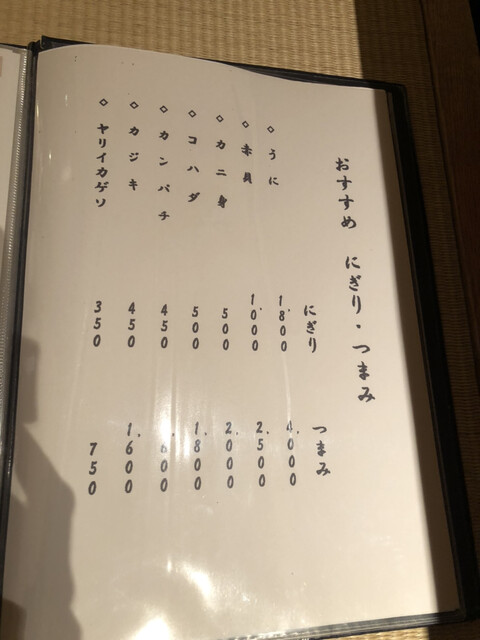 おすすめ にぎり・つまみ
にぎり つまみ
◇うに 1,800 4,000
◇赤貝 1,000 2,500
◇カニ身 500 2,000
◇コハダ 500 1,800
◇カンパチ 450 1,600
◇カジキ 450 1,600
◇ヤリイカゲソ 350 750